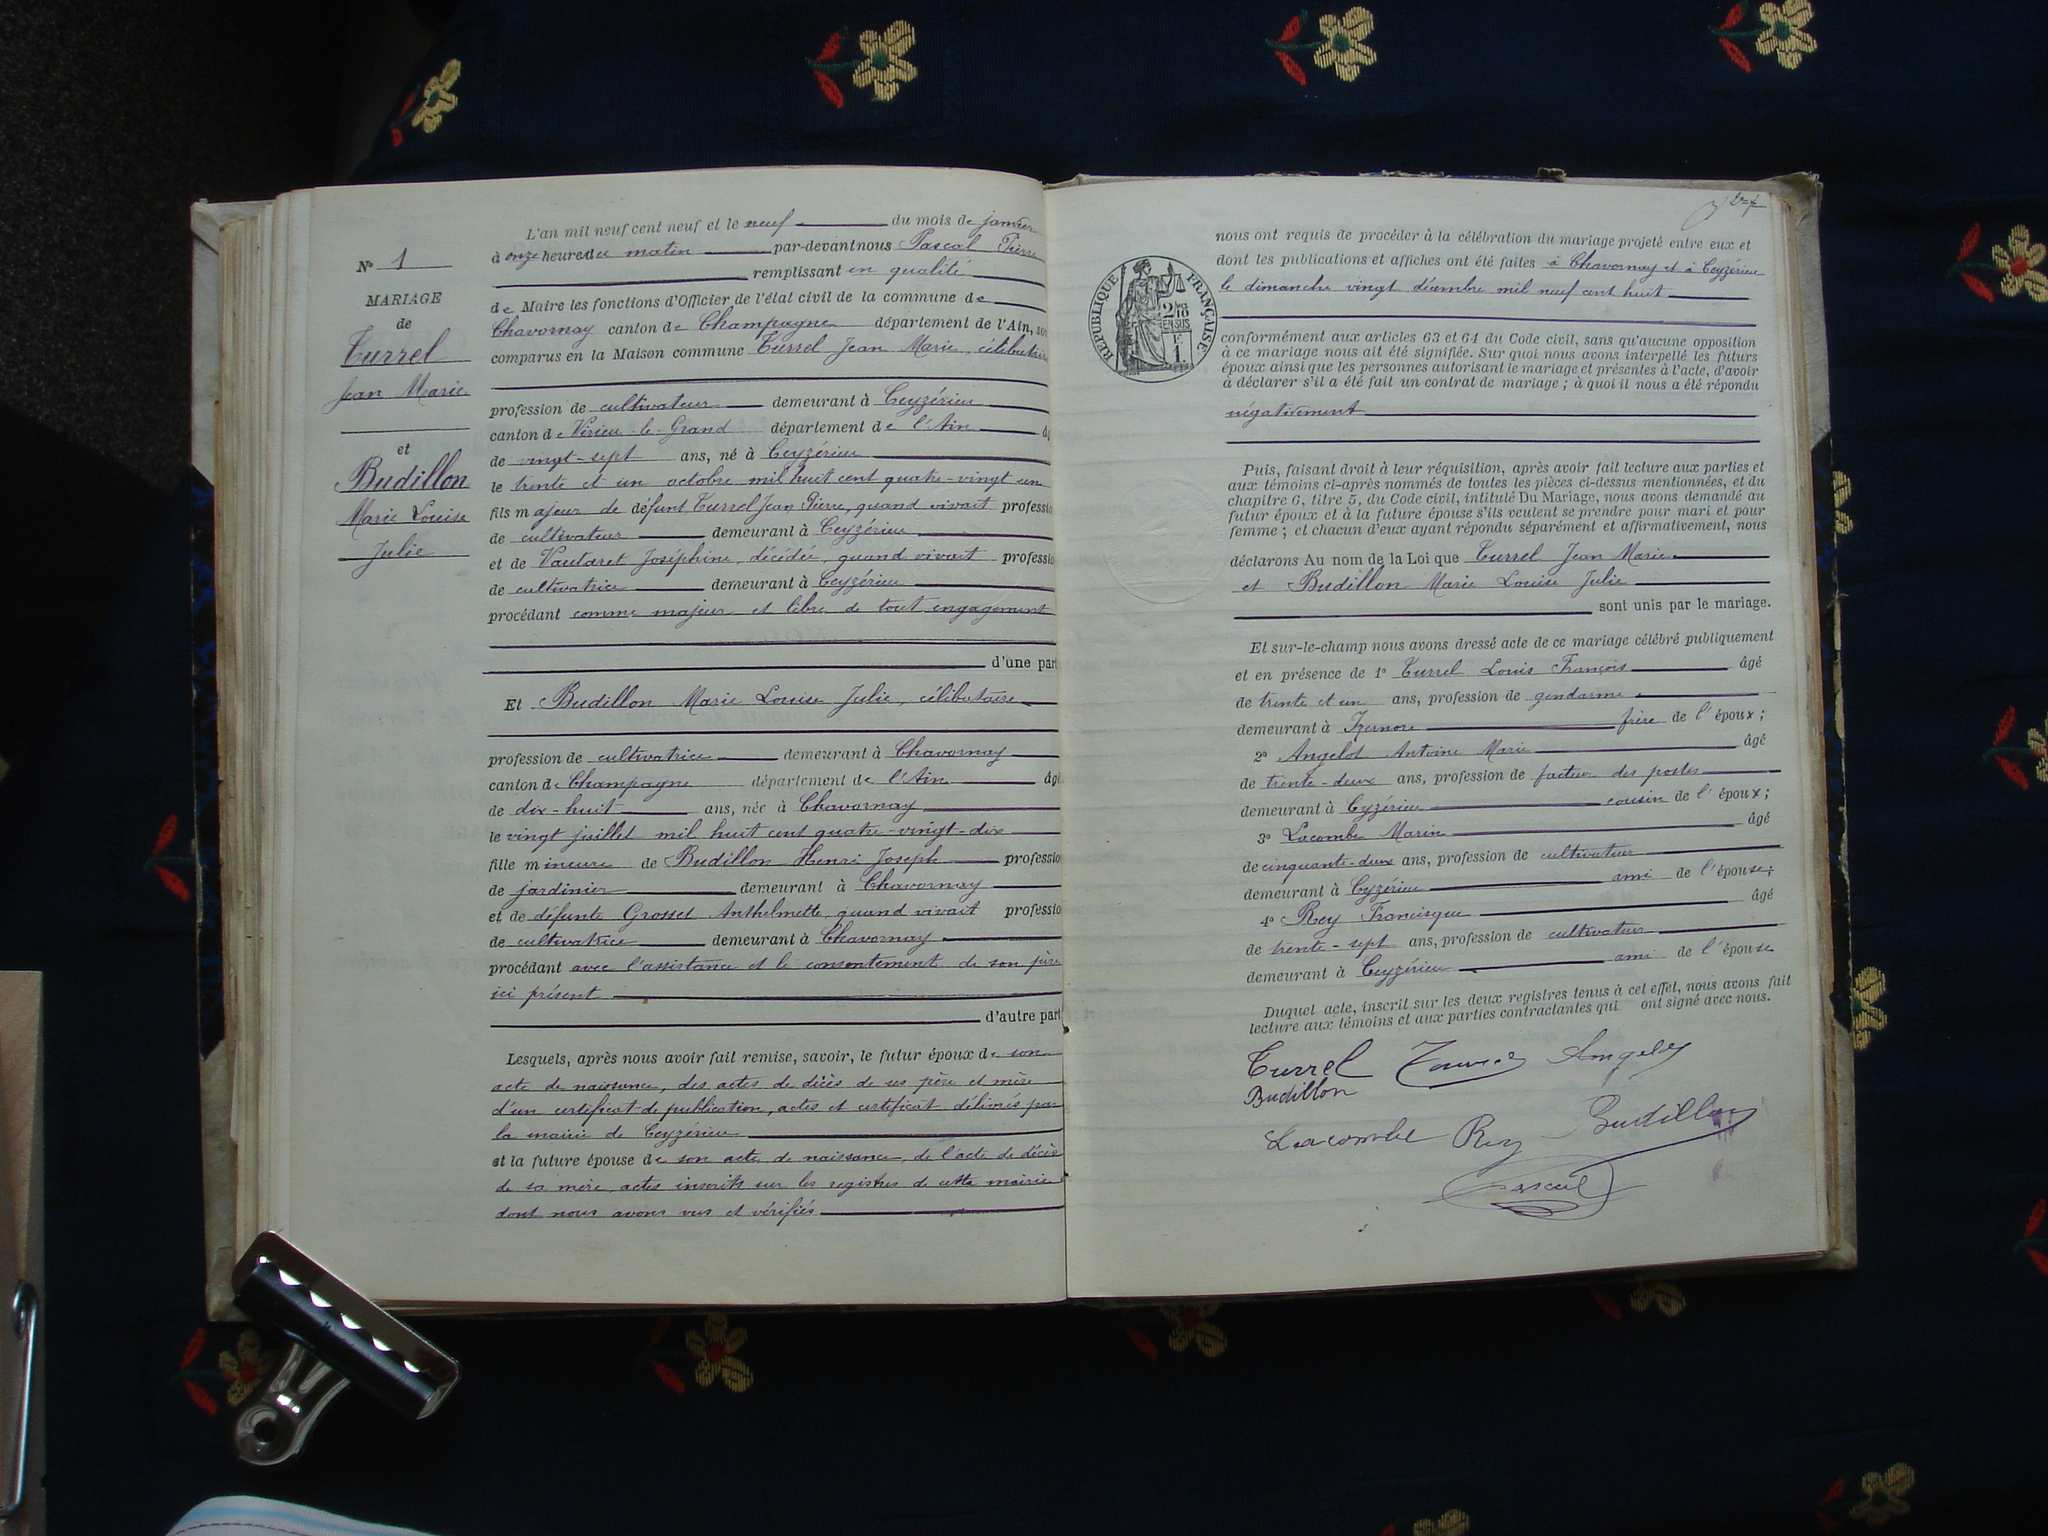 N° 1
MARIAGE
de
Turrel
Jean Marie
et
Budillon
Marie Louise
Julie
L'an mil neuf cent neuf et le neuf du mois de janvier
à onze heures du matin par-devant nous Pascal Pierre
remplissant en qualité
de Maire les fonctions d'Officier de l'état civil de la commune de
Chavornay canton de Champagne département de l'Ain, so
comparus en la Maison commune Turrel Jean Marie, célibataire
profession de cultivateur demeurant à Ceyzérieu
canton de Virieu-le-Grand département de l'Ain âg
de vingt-sept ans, né à Ceyzérieu
le trente et un octobre mil huit cent quatre-vingt un
fils majeur de défunt Turrel Jean Pierre, quand vivait professio
de cultivateur demeurant à Ceyzérieu
et de Vautaret Joséphine, décédée, quand vivait professio
de cultivatrice demeurant à Ceyzérieu
procédant comme majeur et libre de tout engagement
d'une part
Et Budillon Marie Louise Julie, célibataire
profession de cultivatrice demeurant à Chavornay
canton de Champagne département de l'Ain âgé
de dix-huit ans, née à Chavornay
le vingt juillet mil huit cent quatre-vingt-dix
fille mineure de Budillon Henri Joseph professio
de jardinier demeurant à Chavornay
et de défunte Grosset Anthelmette, quand vivait professio
de cultivatrice demeurant à Chavornay
procédant avec l'assistance et le consentement de son père
ici présent
d'autre part
Lesquels, après nous avoir fait remise, savoir, le futur époux de son
acte de naissance, des actes de décès de ses père et mère
d'un certificat de publication, actes et certificat délivrés par
la mairie de Ceyzérieu
et la future épouse de son acte de naissance, de l'acte de décès
de sa mère, actes inscrits sur les registres de cette mairie
dont nous avons vus et vérifiés
27
RÉPUBLIQUE FRANÇAISE
2/10
EN SUS
1F
nous ont requis de procéder à la célébration du mariage projeté entre eux et
dont les publications et affiches ont été faites à Chavornay et à Ceyzérieu
le dimanche vingt décembre mil neuf cent huit
conformément aux articles 63 et 64 du Code civil, sans qu'aucune opposition
à ce mariage nous ait été signifiée. Sur quoi nous avons interpellé les futurs
époux ainsi que les personnes autorisant le mariage et présentes à l'acte, d'avoir
à déclarer s'il a été fait un contrat de mariage ; à quoi il nous a été répondu
négativement
Puis, faisant droit à leur réquisition, après avoir fait lecture aux parties et
aux témoins ci-après nommés de toutes les pièces ci-dessus mentionnées, et du
chapitre 6, titre 5, du Code civil, intitulé Du Mariage, nous avons demandé au
futur époux et à la future épouse s'ils veulent se prendre pour mari et pour
femme ; et chacun d'eux ayant répondu séparément et affirmativement, nous
déclarons Au nom de la Loi que Turrel Jean Marie
et Budillon Marie Louise Julie
sont unis par le mariage.
Et sur-le-champ nous avons dressé acte de ce mariage célébré publiquement
et en présence de 1° Turrel Louis François âgé
de trente et un ans, profession de gendarme
demeurant à Izernore frère de l'époux ;
2° Angelot Antoine Marie âgé
de trente-deux ans, profession de facteur des postes
demeurant à Cyzérieu cousin de l'époux ;
3° Lacombe Marin âgé
de cinquante-deux ans, profession de cultivateur
demeurant à Cyzérieu ami de l'épouse ;
4° Rey Francisque âgé
de trente-sept ans, profession de cultivateur
demeurant à Ceyzérieu ami de l'épouse
Duquel acte, inscrit sur les deux registres tenus à cet effet, nous avons fait
lecture aux témoins et aux parties contractantes qui ont signé avec nous.
Turrel Angelot
Budillon
Lacombe Rey Budillon
Pascal